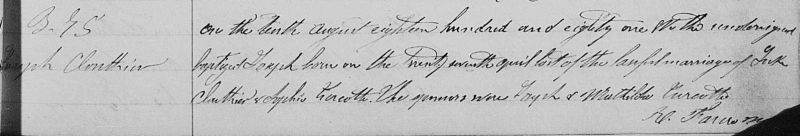 B. 75
Joseph Clouthier
on the tenth August eighteen hundred and eighty one the undersigned
baptized Joseph born on the twenty seventh april last of the lawful marriage of
Clouthier & Sophie Turcotte. The sponsors were Joseph & Mathilda Turcotte